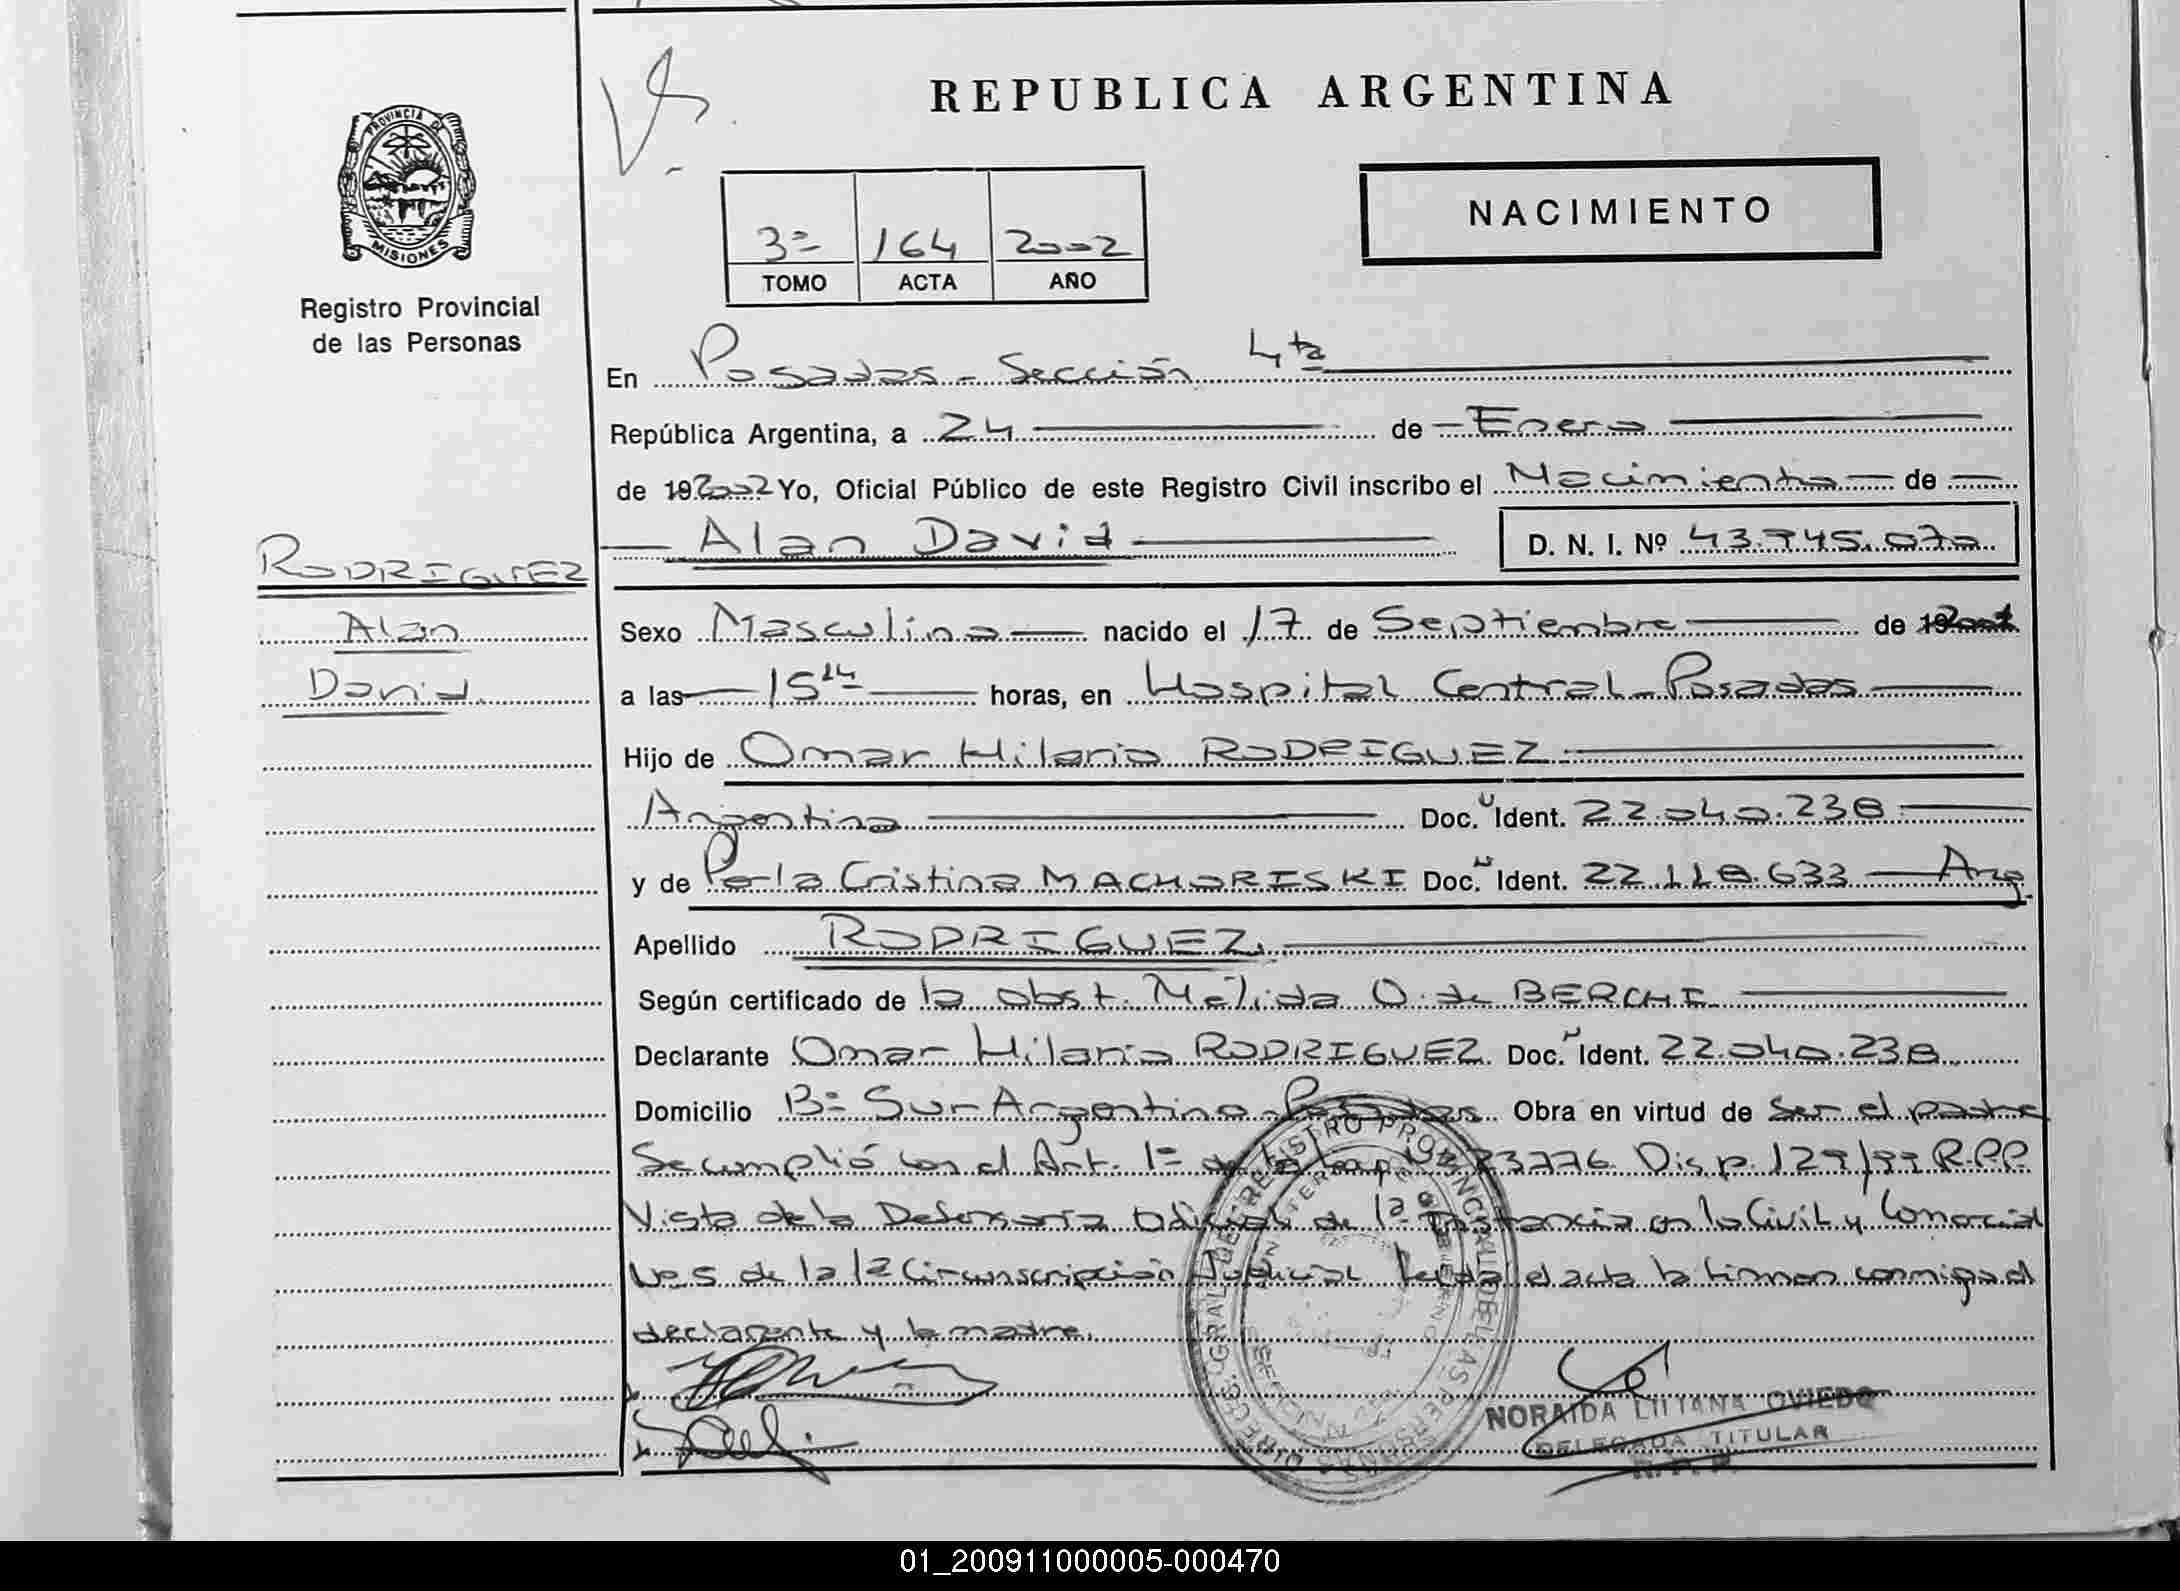 REPUBLICA ARGENTINA
PROVINCIA DE
MISIONES
Registro Provincial
de las Personas
3º 164 2002
TOMO ACTA AÑO
NACIMIENTO
En Posadas - Sección 4ta
República Argentina, a 24 de Enero
de 192002 Yo, Oficial Público de este Registro Civil inscribo el Nacimiento de
Alan David D. N. I. Nº 43.745.070
RODRIGUEZ
Alan
David
Sexo Masculino nacido el 17 de Septiembre de 192001
a las 15 14 horas, en Hospital Central - Posadas
Hijo de Omar Hilario RODRIGUEZ
Argentino Doc. Ident. 22.040.238
y de Perla Cristina MACHORISKI Doc. Ident. 22.118.633 Arg.
Apellido RODRIGUEZ
Según certificado de la obst. Nélida O. de BERCHI
Declarante Omar Hilario RODRIGUEZ Doc. Ident. 22.040.238
Domicilio Bº Sur Argentino - Posadas Obra en virtud de ser el padre
Se cumplió con el Art. 1º de la Ley Nº 23776 Disp. 129/99 R.P.P.
Vista de la Defensoría Oficial de 1ª Instancia en lo Civil y Comercial
Nº 5 de la 1ª Circunscripción Judicial Leída el acta la firman conmigo el
declarante y la madre.
DIRECC. GRAL. DE REGISTRO PROVINCIAL DE LAS PERSONAS
NORAIDA LILIANA OVIEDO
DELEGADA TITULAR
R.P.P.
01_200911000005-000470